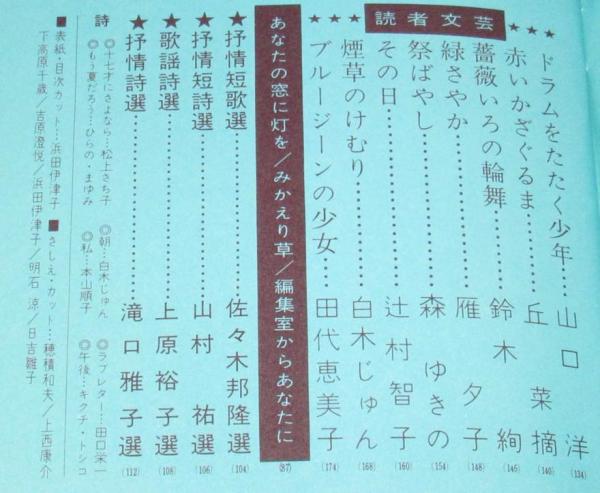 読者文芸
★★★ ★★★
ドラムをたたく少年……山口 洋(134)
赤いかざぐるま……丘 菜摘(140)
薔薇いろの輪舞……鈴木 絢(145)
緑さやか……雁 夕子(148)
祭ばやし……森 ゆきの(154)
その日……辻村智子(160)
煙草のけむり……白木じゅん(168)
ブルージーンの少女……田代恵美子(174)
あなたの窓に灯を/みかえり草/編集室からあなたに(87)
★抒情短歌選……佐々木邦隆選(104)
★抒情短詩選……山村 祐選(106)
★歌謡詩選……上原裕子選(108)
★抒情詩選……滝口雅子選(112)
詩
◎十七才にさよなら…松上さち子 ◎朝…白木じゅん ◎ラブレター…田口栄一
◎もう夏だろう…ひらの・まゆみ ◎私…本山順子 ◎午後…キクチ・トシコ
■表紙・目次カット…浜田伊津子 ■さしえ・カット…穂積和夫/上西康介
下高原千歳/吉原澄悦/浜田伊津子/明石 涼/日吉雛子